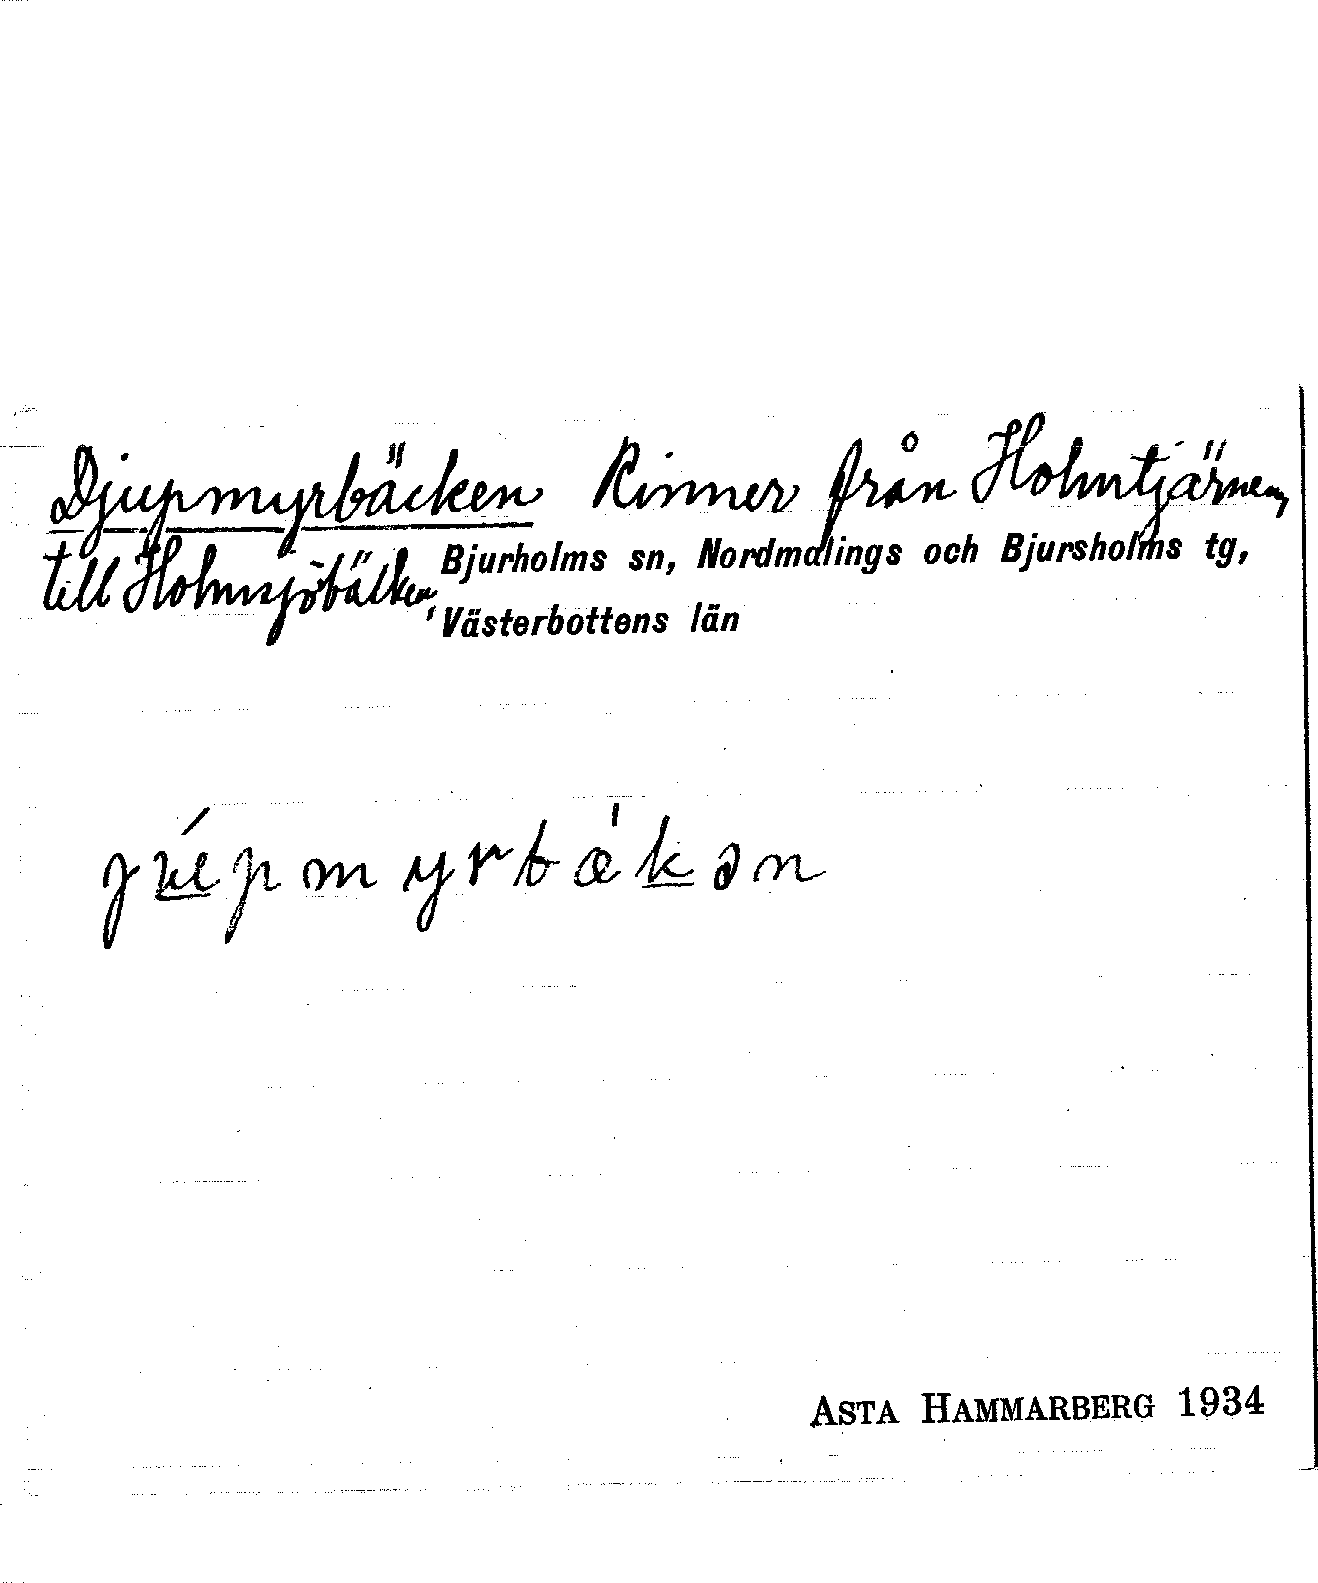 Djupmyrbäcken Rinner från Holmtjärnen
till Holmsjöbäcken,
Bjurholms sn, Nordmalings och Bjursholms tg,
Västerbottens län
ASTA HAMMARBERG 1934